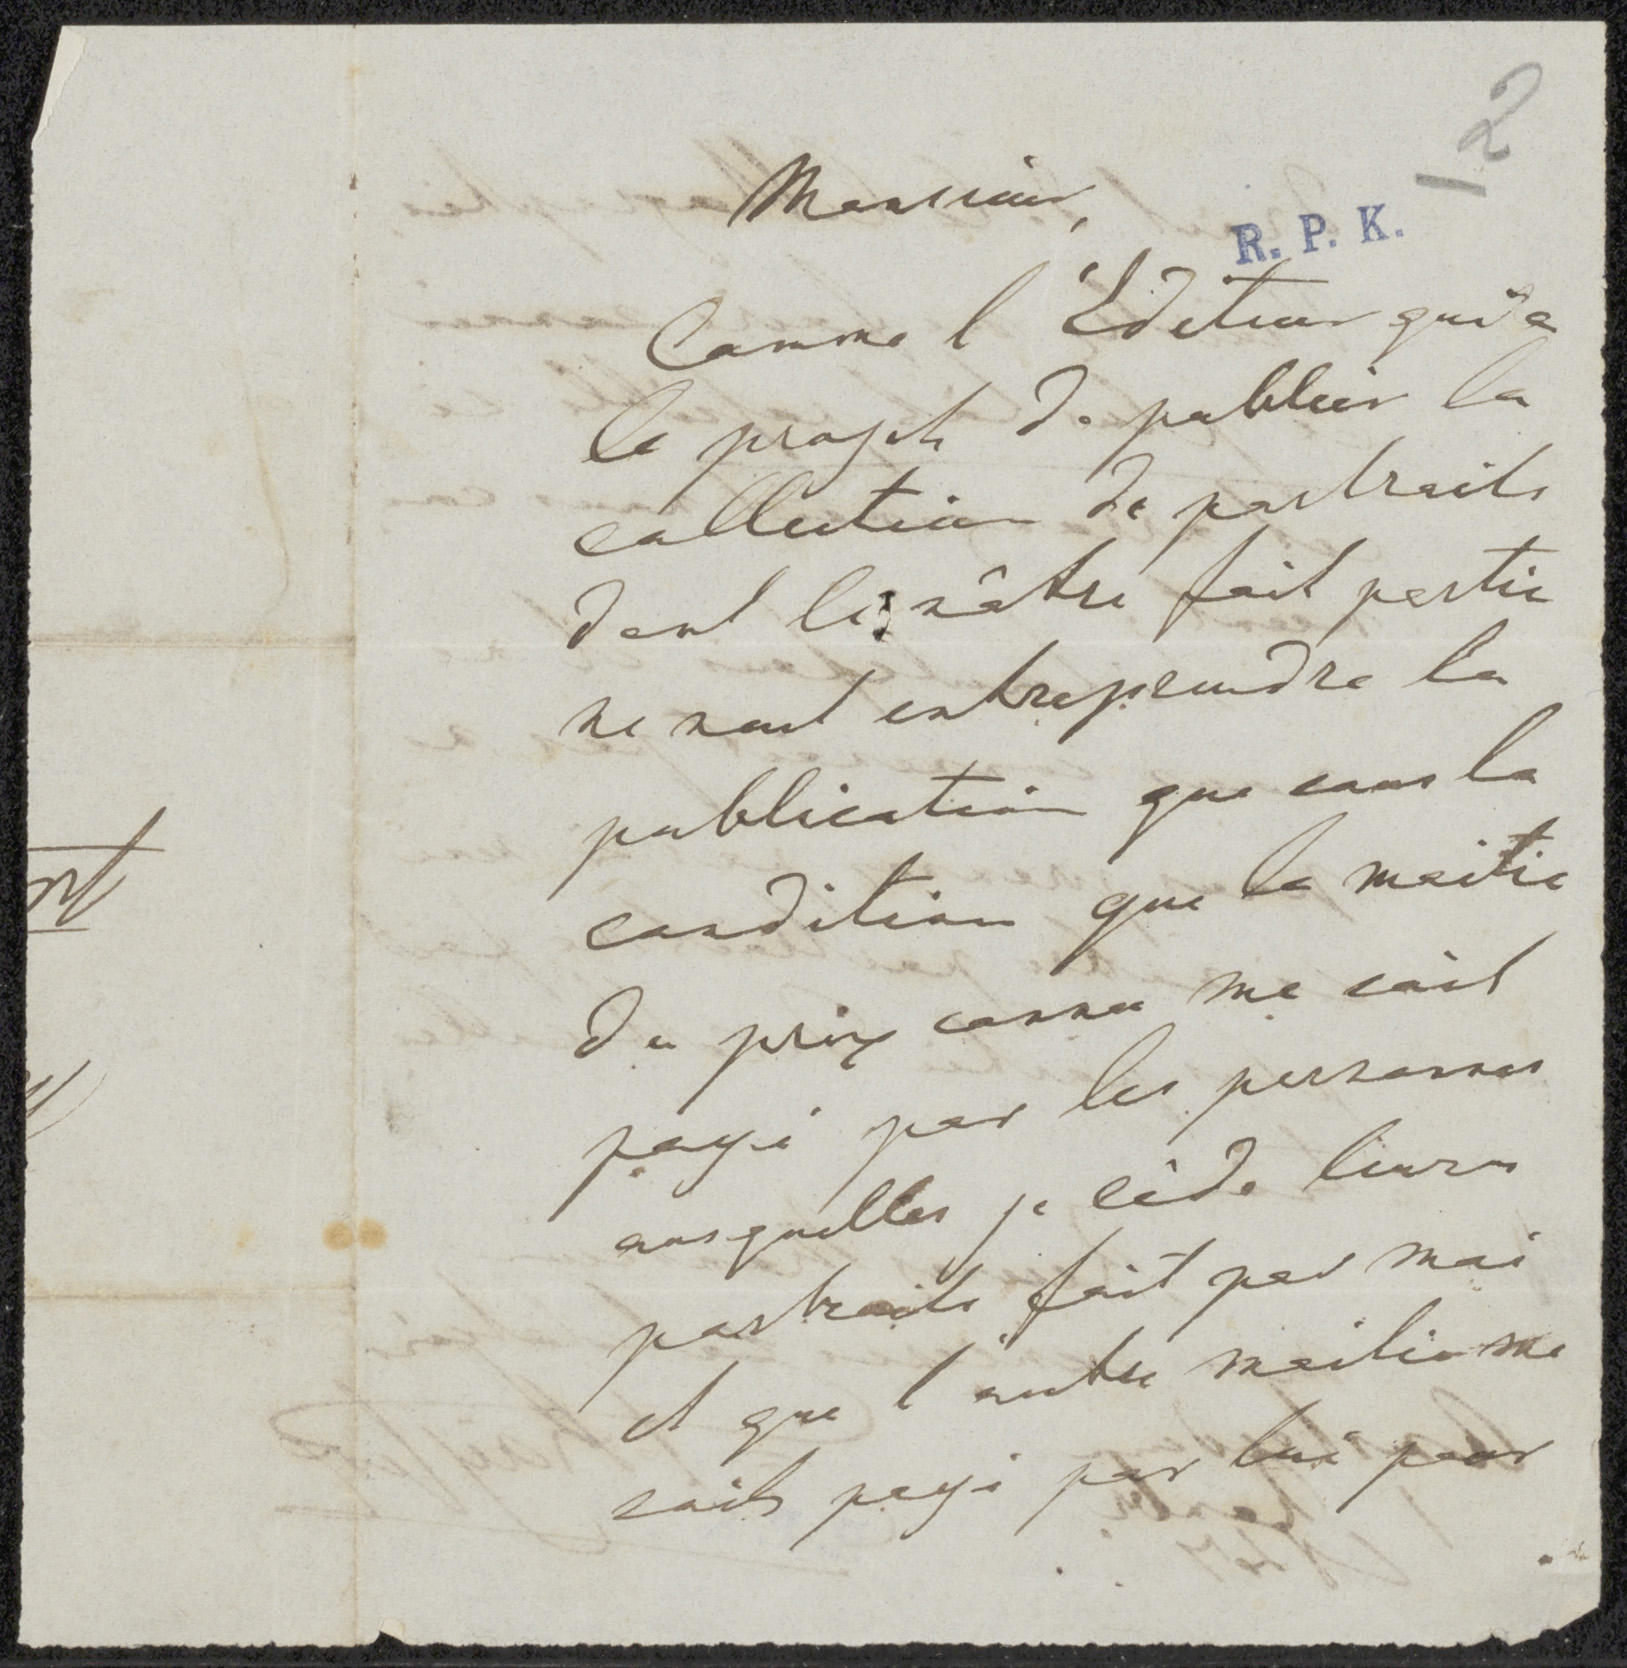 2
R. P. K.
Monsieur,
Comme l'Editeur qui a
le projet de publier la
collection de portraits
dont le nôtre fait partie
ne veut entreprendre la
publication que sous la
condition que la moitie
du prix connu me soit
payé par les personnes
ausquelles je cède leurs
portraits fait par moi
et que l'autre moitie me
soit payé par lui pour